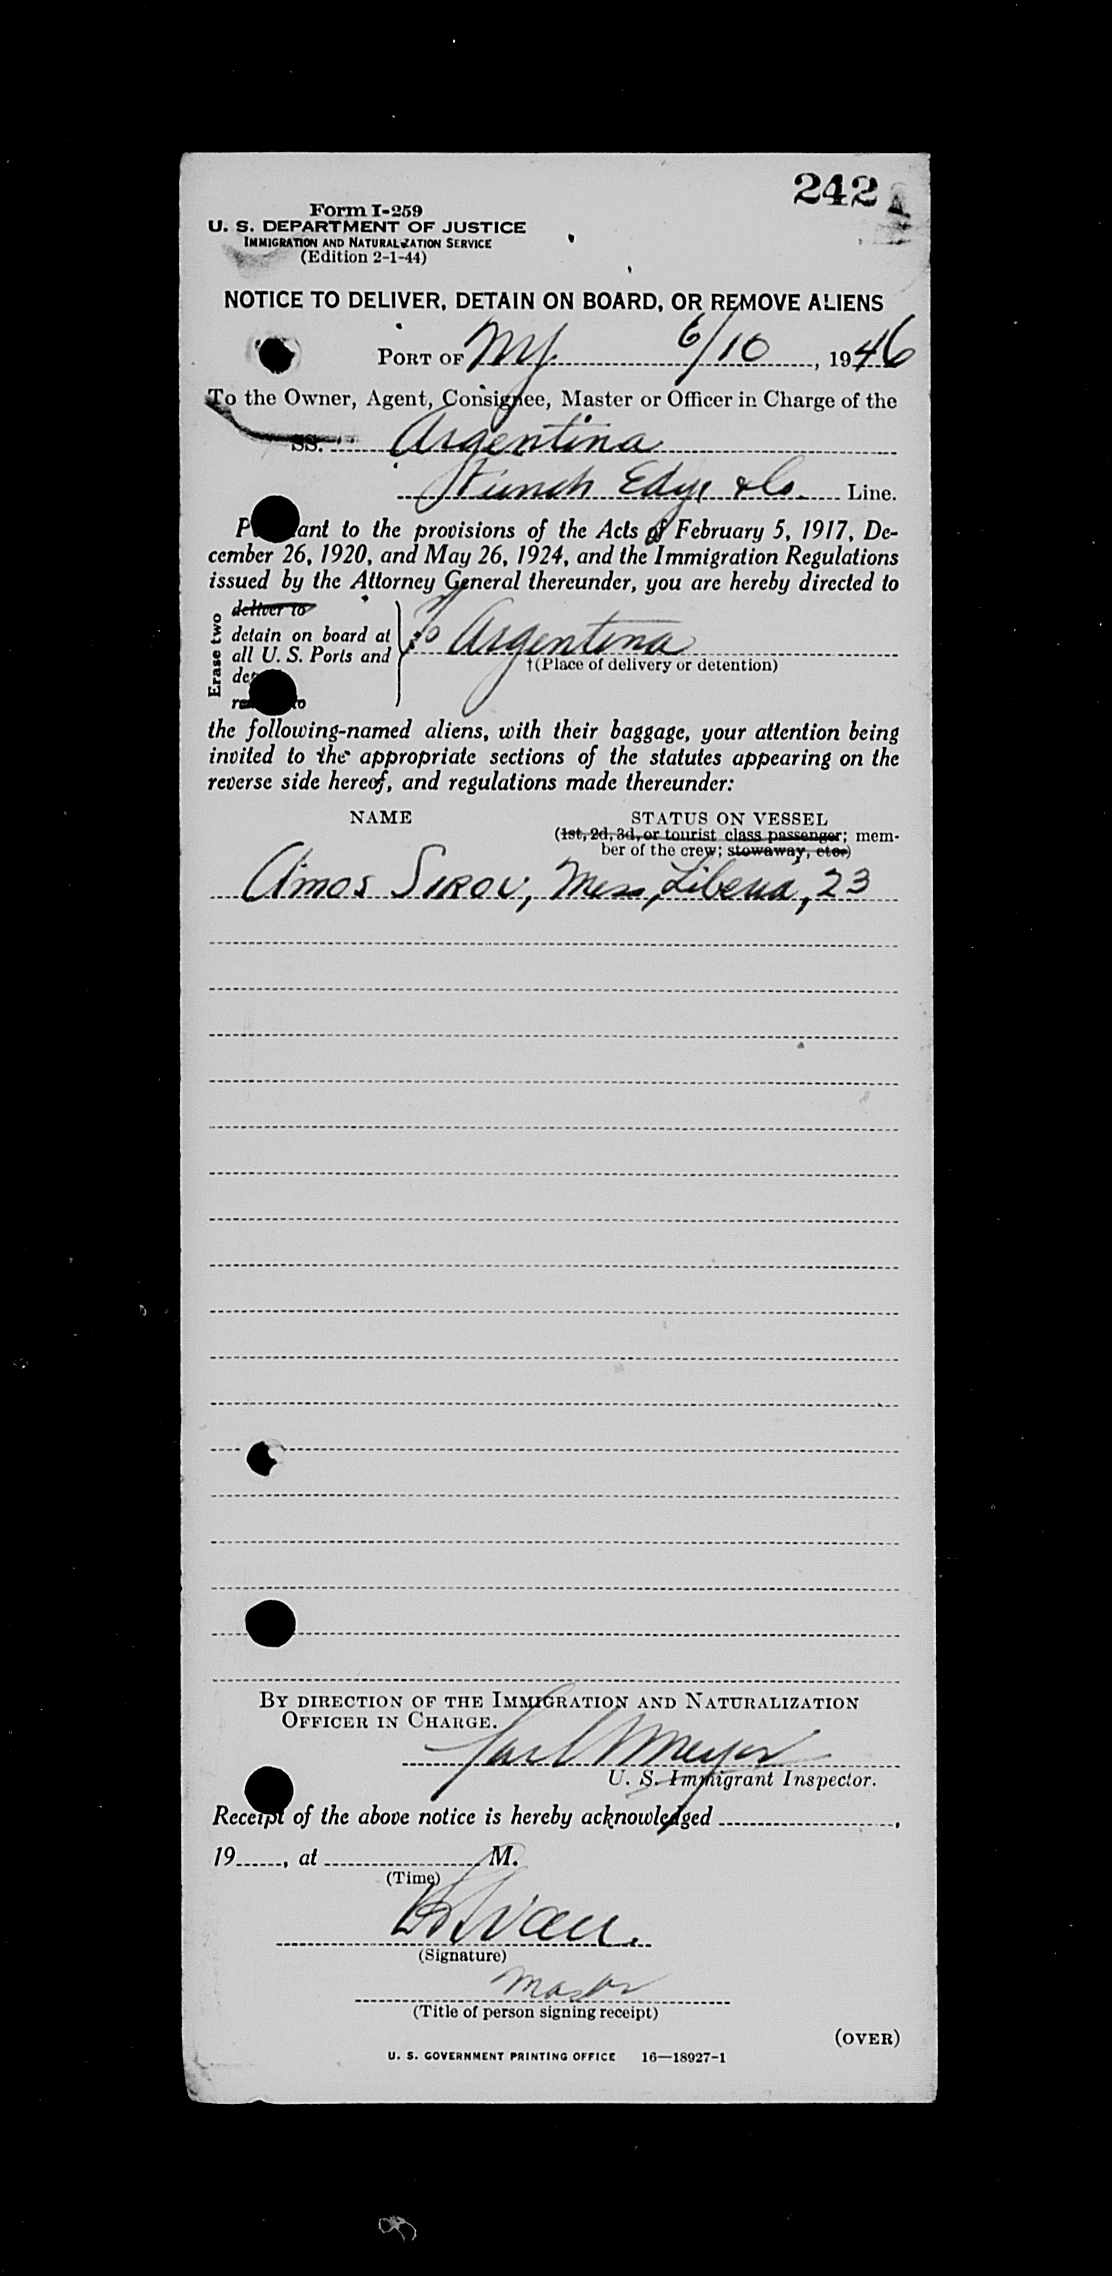 242
Form I-259
U. S. DEPARTMENT OF JUSTICE
IMMIGRATION AND NATURALIZATION SERVICE
(Edition 2-1-44)
NOTICE TO DELIVER, DETAIN ON BOARD, OR REMOVE ALIENS
PORT OF NY 6/10, 1946
To the Owner, Agent, Consignee, Master or Officer in Charge of the
SS. Argentina
Edye & Co. Line.
to the provisions of the Acts of February 5, 1917, De-
cember 26, 1920, and May 26, 1924, and the Immigration Regulations
issued by the Attorney General thereunder, you are hereby directed to
Erase two
deliver to
detain on board at
all U. S. Ports and
Argentina
†(Place of delivery or detention)
the following-named aliens, with their baggage, your attention being
invited to the appropriate sections of the statutes appearing on the
reverse side hereof, and regulations made thereunder:
NAME STATUS ON VESSEL
(1st, 2d, 3d, or tourist class passenger; mem-
ber of the crew; stowaway, etc.)
Amos Sirov, Mess, Liberia, 23
BY DIRECTION OF THE IMMIGRATION AND NATURALIZATION
OFFICER IN CHARGE.
Meyer
U. S. Immigrant Inspector.
Receipt of the above notice is hereby acknowledged ,
19 , at M.
(Time)
(Signature)
Master
(Title of person signing receipt)
(OVER)
U. S. GOVERNMENT PRINTING OFFICE 16—18927-1